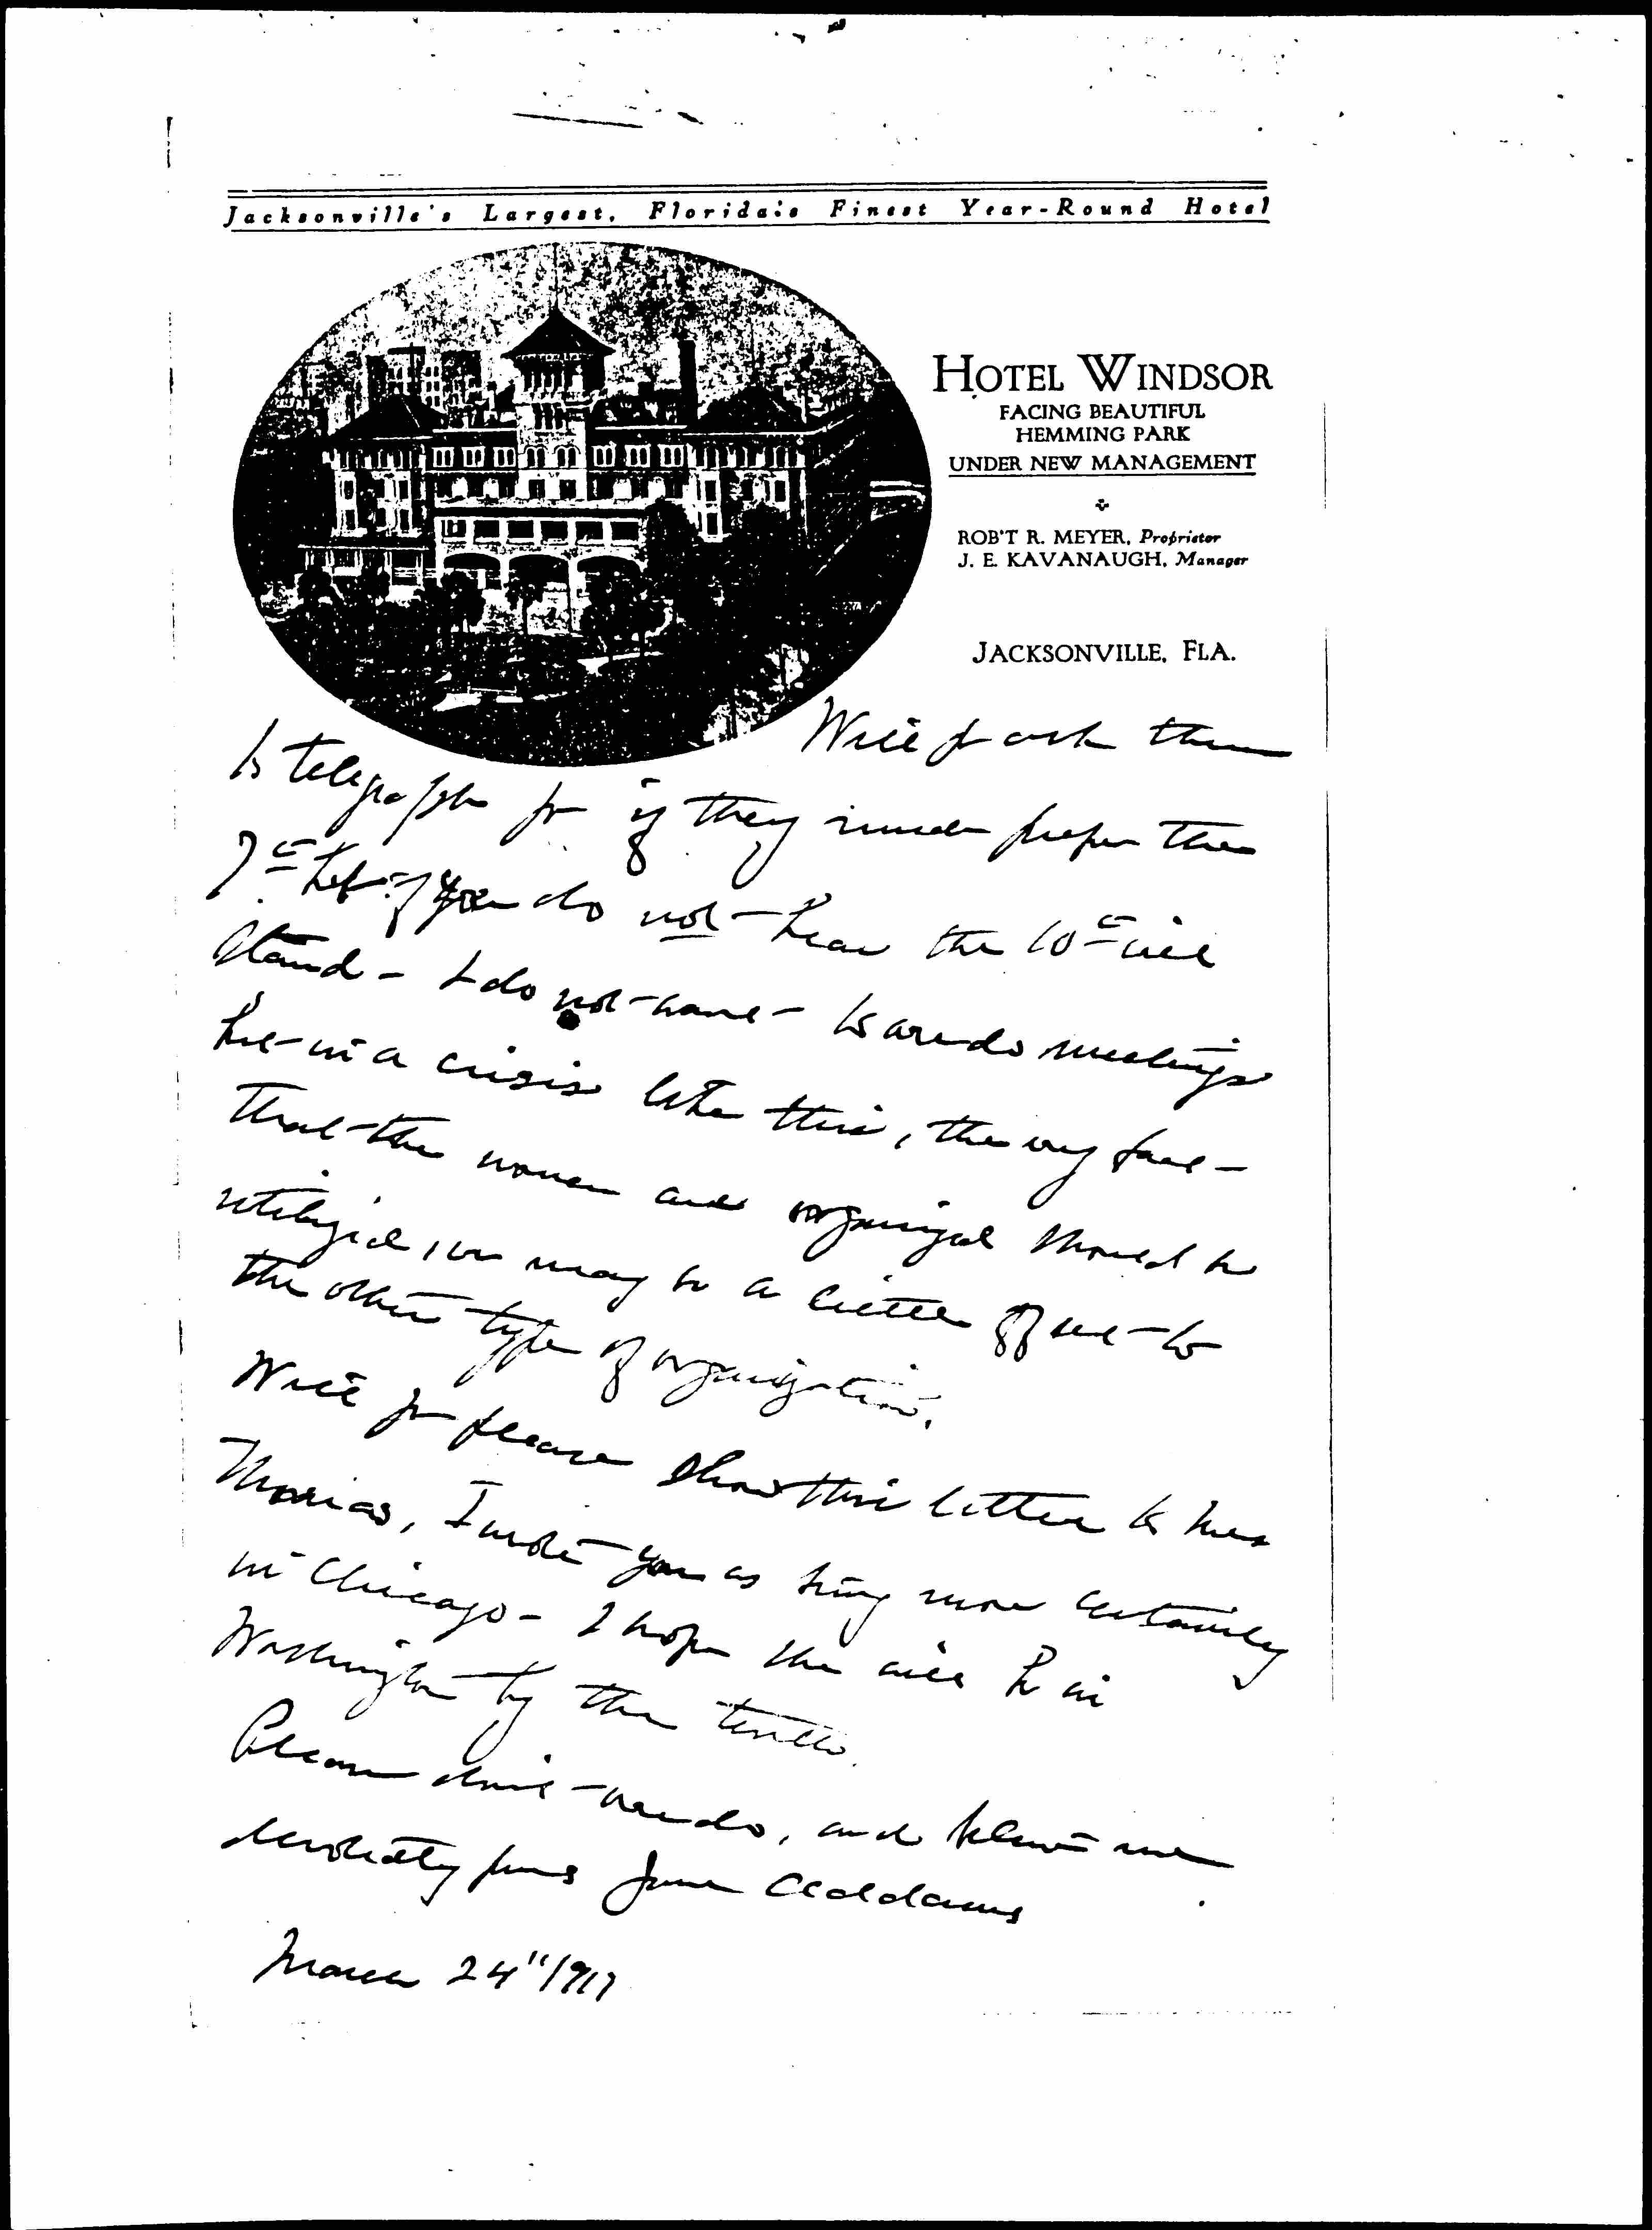 Jacksonville's Largest, Florida's Finest Year-Round Hotel
HOTEL WINDSOR
FACING BEAUTIFUL
HEMMING PARK
UNDER NEW MANAGEMENT
ROB'T R. MEYER, Proprietor
J. E. KAVANAUGH, Manager
JACKSONVILLE, FLA.
Will you ask them
to telegraph you if they much prefer the
7th but if you do not hear the 10th will
stand - I do not want to avoid meetings
but in a crisis like this, the very fact
that the women are organized should be
utilized, we may be a little offset to
the other type of organization.
Will you please show this letter to Mrs
Thomas, I wrote you as being more certainly
in Chicago - I hope she will be in
Washington by the tenth.
Please don't and believe me
devotedly yours Jane Addams
March 24" 1917